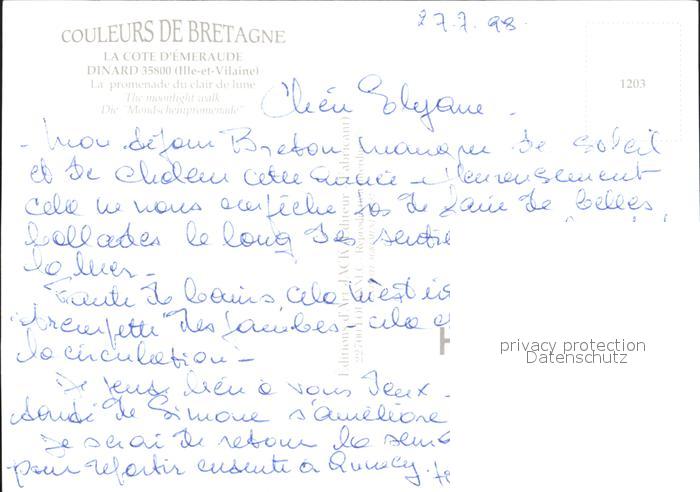 27.7.98
COULEURS DE BRETAGNE
LA COTE D'ÉMERAUDE
DINARD 35800 (Ille-et-Vilaine)
La promenade du clair de lune
The moonlight walk
Die "Mondscheinpromenade"
1203
Chère Elyane
- Mon séjour Breton manque de soleil
et de chaleur cette année - Heureusement
cela ne nous empêche pas de faire de belles
ballades le long des sentie
la mer -
Faute de bains, cela n'est
trempette des jambes - cela
la circulation -
Je pense bien à vous deux -
santé de Simone s'améliore
Je serai de retour la sema
pour repartir ensuite à
privacy protection
Datenschutz